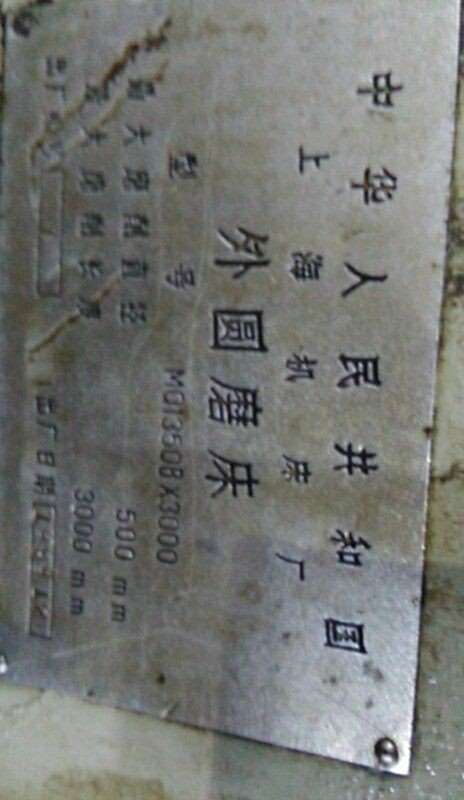 中华人民共和国
上海机床厂
外圆磨床
型号 MQ1350B×3000
最大磨削直径 500mm
最大磨削长度 3000mm
出厂 出厂日期